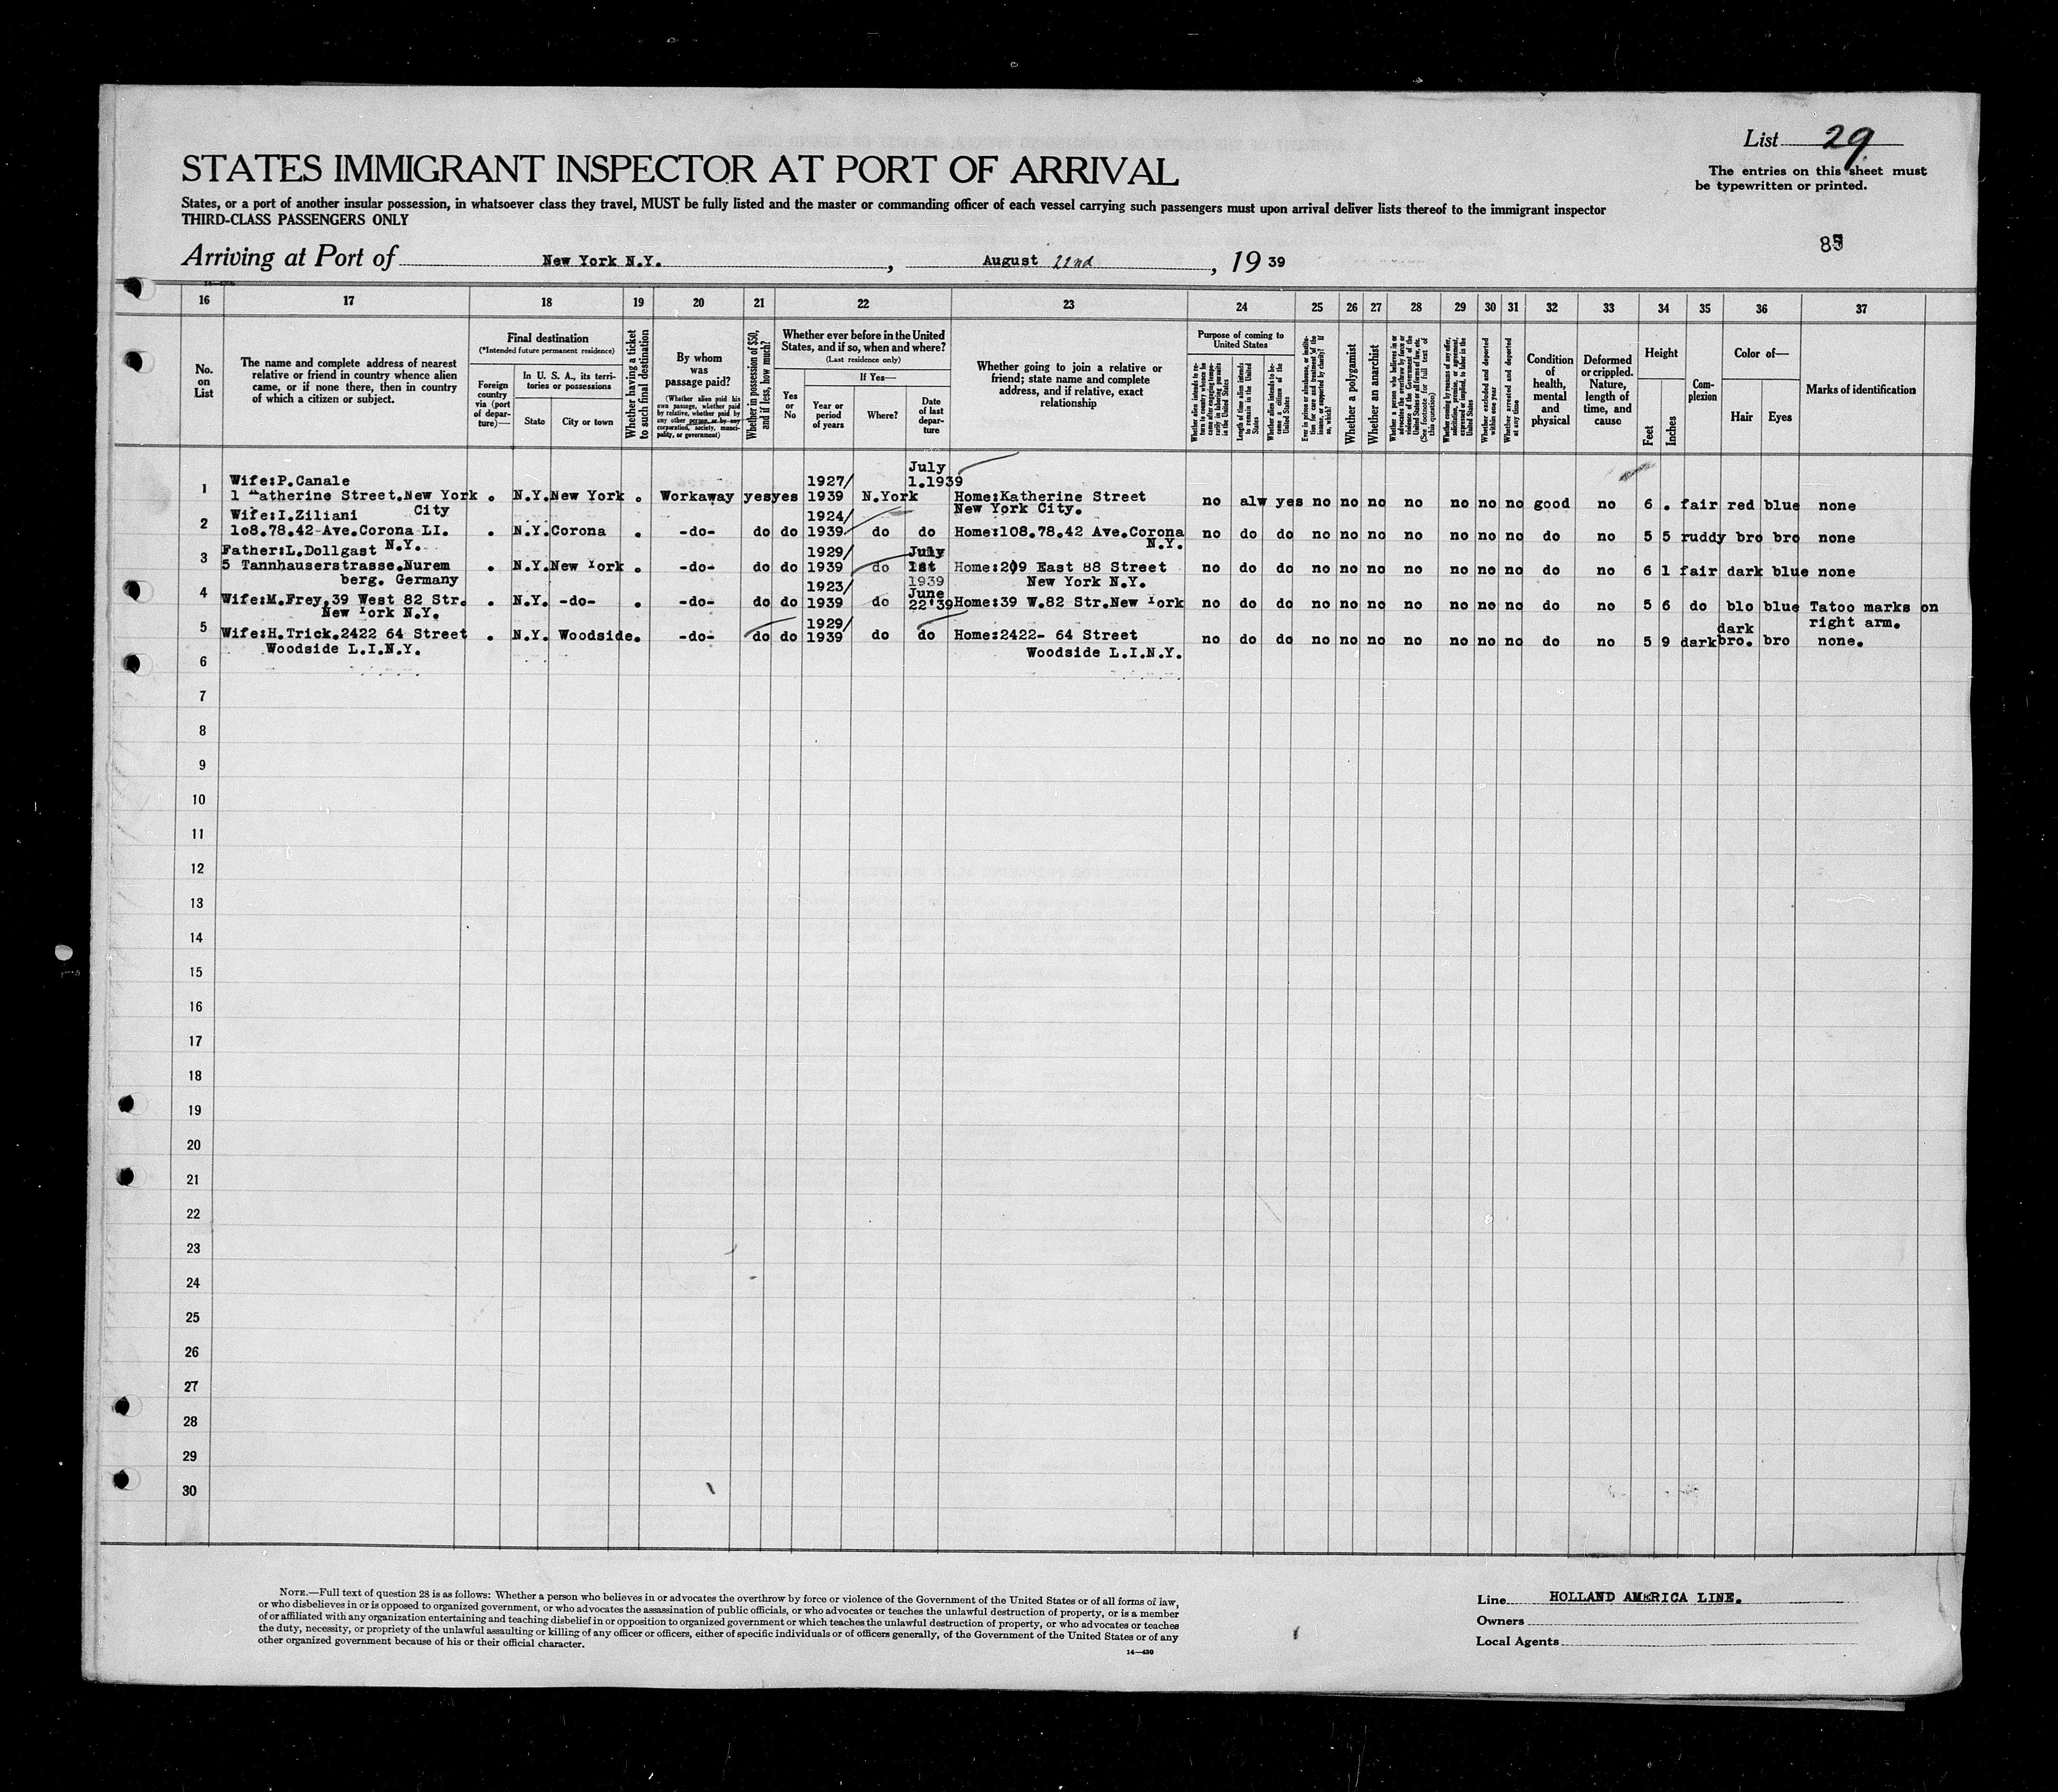 List 29
The entries on this sheet must
be typewritten or printed.
STATES IMMIGRANT INSPECTOR AT PORT OF ARRIVAL
States, or a port of another insular possession, in whatsoever class they travel, MUST be fully listed and the master or commanding officer of each vessel carrying such passengers must upon arrival deliver lists thereof to the immigrant inspector
THIRD-CLASS PASSENGERS ONLY
Arriving at Port of New York N.Y. , August 22nd , 19 39
16 17 18 19 20 21 22 23 24 25 26 27 28 29 30 31 32 33 34 35 36 37
No.
on
List
The name and complete address of nearest
relative or friend in country whence alien
came, or if none there, then in country
of which a citizen or subject.
Final destination
(*Intended future permanent residence)
Foreign
country
via (port
of depar-
ture)—
In U. S. A., its terri-
tories or possessions
State
City or town
Whether having a ticket
to such final destination
By whom
was
passage paid?
(Whether alien paid his
own passage, whether paid
by relative, whether paid by
any other person, or by any
corporation, society, munici-
pality, or government)
Whether in possession of $50,
and if less, how much?
Whether ever before in the United
States, and if so, when and where?
(Last residence only)
Yes
or
No
If Yes—
Year or
period
of years
Where?
Date
of last
depar-
ture
Whether going to join a relative or
friend; state name and complete
address, and if relative, exact
relationship
Purpose of coming to
United States
Length of time alien intends
to remain in the United
States
Whether alien intends to be-
come a citizen of the
United States
Whether a polygamist
Whether an anarchist
Whether excluded and deported
within one year
Whether arrested and deported
at any time
Condition
of
health,
mental
and
physical
Deformed
or crippled.
Nature,
length of
time, and
cause
Height
Feet
Inches
Com-
plexion
Color of—
Hair
Eyes
Marks of identification
July
Wife:P.Canale 1927/ 1.1939
1 1 atherine Street.New York . N.Y.New York . Workaway yes yes 1939 N.York Home:Katherine Street no alw yes no no no no no no no good no 6 . fair red blue none
City New York City.
Wife:I.Ziliani 1924/
2 1o8.78.42 Ave.Corona LI. . N.Y.Corona . -do- do do 1939 do do Home:108.78.42 Ave.Corona no do do no no no no no no no do no 5 5 ruddy bro bro none
N.Y. N.Y.
3 Father:L.Dollgast 1929/ July
5 Tannhauserstrasse.Nurem . N.Y.New York . -do- do do 1939 do 1st Home:209 East 88 Street no do do no no no no no no no do no 6 1 fair dark blue none
berg. Germany 1923/ 1939 New York N.Y.
June
4 Wife:M.Frey.39 West 82 Str. . N.Y. -do- . -do- do do 1939 do 22'39 Home:39 W.82 Str.New York no do do no no no no no no no do no 5 6 do blo blue Tatoo marks on
New York N.Y. right arm.
5 1929/ dark
Wife:H.Trick.2422 64 Street . N.Y. Woodside. -do- do do 1939 do do Home:2422- 64 Street no do do no no no no no no no do no 5 9 dark bro. bro none.
Woodside L.I.N.Y. Woodside L.I.N.Y.
6
7
8
9
10
11
12
13
14
15
16
17
18
19
20
21
22
23
24
25
26
27
28
29
30
NOTE.—Full text of question 28 is as follows: Whether a person who believes in or advocates the overthrow by force or violence of the Government of the United States or of all forms of law,
or who disbelieves in or is opposed to organized government, or who advocates the assassination of public officials, or who advocates or teaches the unlawful destruction of property, or is a member
of or affiliated with any organization entertaining and teaching disbelief in or opposition to organized government or which teaches the unlawful destruction of property, or who advocates or teaches
the duty, necessity, or propriety of the unlawful assaulting or killing of any officer or officers, either of specific individuals or of officers generally, of the Government of the United States or of any
other organized government because of his or their official character.
14—430
Line HOLLAND AMERICA LINE.
Owners
Local Agents